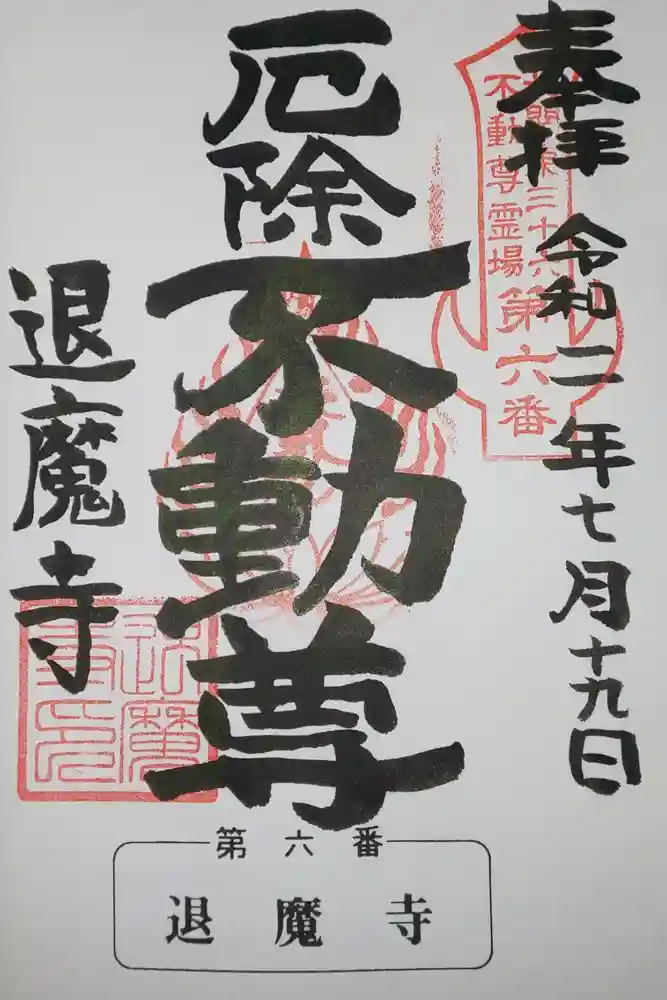 奉拝
令和二年七月十九日
関東三十六
不動尊霊場
第六番
厄除
不動尊
退魔寺
退魔
寺印
第六番
退魔寺